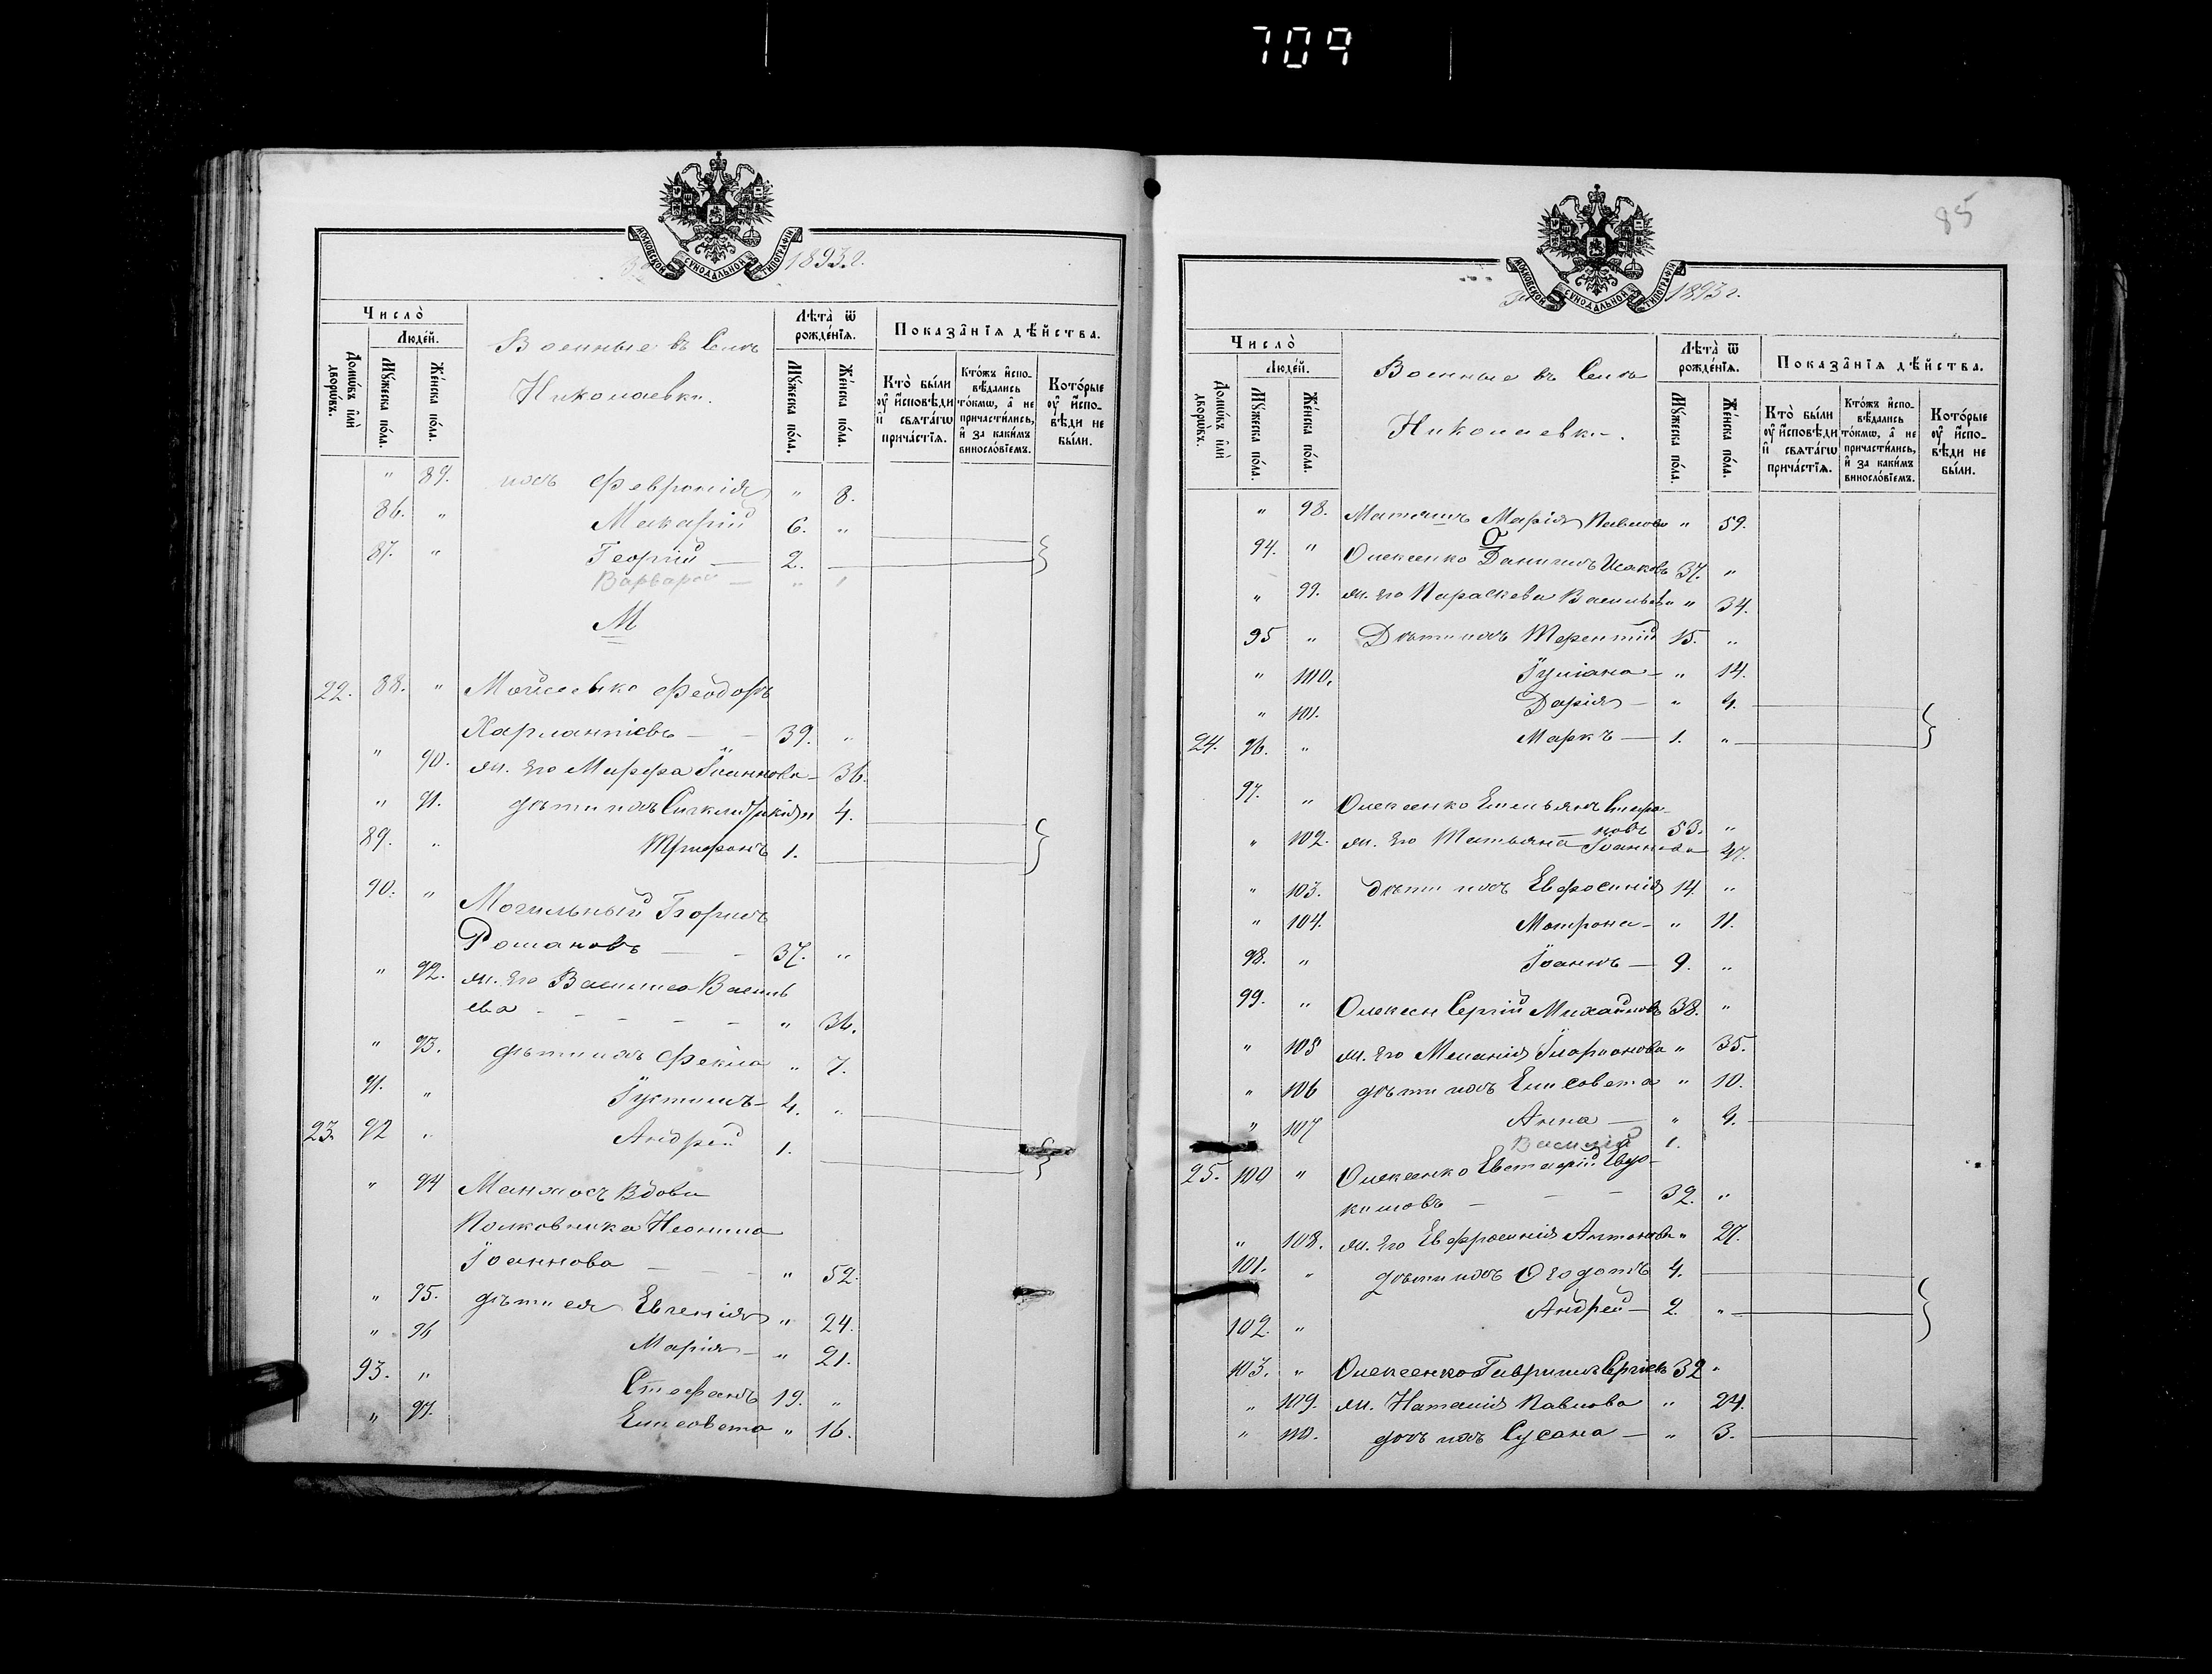 709
МОСКОВСКОЙ СУНОДАЛЬНОЙ ТИПОГРАФІИ
1893 г.
Число̀
Людей.
Домѡвъ илѝ дворѡвъ.
Мꙋжеска пола.
Женска пола.
Военные въ Селѣ
Николаевки.
Лѣта̀ ѿ рождéнїѧ.
Мꙋжеска пола.
Женска пола.
Показа̑нїѧ дѣ́йства.
Кто̀ бы́ли ᲂу҆ и҆сповѣди и҆ свѧта́гѡ прича́стїѧ.
Кто́жъ и҆сповѣдались то́кмѡ, а҆ не причасти́лись, и҆ за каки́мъ винослóвїемъ.
Которые ᲂу҆ и҆сповѣди не бы́ли.
" 89. ихъ Февронія " 8.
86. " Макарій 6. "
87. " Георгій — 2.
Варвара — " 1
М
22. 88. " Мойсеенко Феодоръ
Харлампіевъ — 39. "
" 90. ж. его Марфа Іоаннова — 36.
" 91. дѣти ихъ 4.
89. " Трифонъ 1.
90. " Могильный
Романовъ — 37. "
" 92. ж. его Василиса Василь
ева — " 36.
" 93. дѣти ихъ Фекла " 7.
91. " Іустинъ — 4. "
23. 92 " Андрей 1.
" 94 Манжосъ Вдова
Полковника Неонила
Іоаннова — " 52.
" 95. дѣти ея Евгенія " 24.
" 96 Марія — " 21.
93. " Стефанъ 19. "
" 97. Елисовета " 16.
85
МОСКОВСКОЙ СУНОДАЛЬНОЙ ТИПОГРАФІИ
1893 г.
Число̀
Людей.
Домѡвъ илѝ дворѡвъ.
Мꙋжеска пола.
Женска пола.
Военные въ Селѣ
Николаевки.
Лѣта̀ ѿ рождéнїѧ.
Мꙋжеска пола.
Женска пола.
Показа̑нїѧ дѣ́йства.
Кто̀ бы́ли ᲂу҆ и҆сповѣди и҆ свѧта́гѡ прича́стїѧ.
Кто́жъ и҆сповѣдались то́кмѡ, а҆ не причасти́лись, и҆ за каки́мъ винослóвїемъ.
Которые ᲂу҆ и҆сповѣди не бы́ли.
" 98. Марія Павлова " 59.
О
94. " Олексенко Даніилъ Исаковъ 37. "
" 99. ж. его Параскева Васильева " 34.
95 " Дѣти ихъ Терентій 15. "
" 100. Іуліана — " 14.
" 101. Дарія — " 4.
24. 96. " Маркъ — 1. "
97. " Олексенко Емельянъ
новъ 53. "
" 102. ж. его Татьяна Іоаннова 47.
" 103. дѣти ихъ Евфросинія 14 "
" 104. Матрона — " 11.
98. " Іоаннъ — 9. "
99. " Олексен Сергій Михайловъ 38. "
" 105 ж. его Меланія Иларіонова " 35.
" 106 дѣти ихъ Елисовета " 10.
" 107 Анна — " 4.
Василій 1.
25. 100 " Олексенко Евстафій Евдо-
кимовъ — 32. "
" 108. ж. его Евфросинія Антонова " 27.
101. " дѣти ихъ Ѳеодотъ 4.
102. " Андрей — 2. "
103. " Олексенко Гавріилъ Сергіевъ 32 "
" 109. ж. Наталія Павлова " 24.
" 110. дочь ихъ Сусана — " 3.